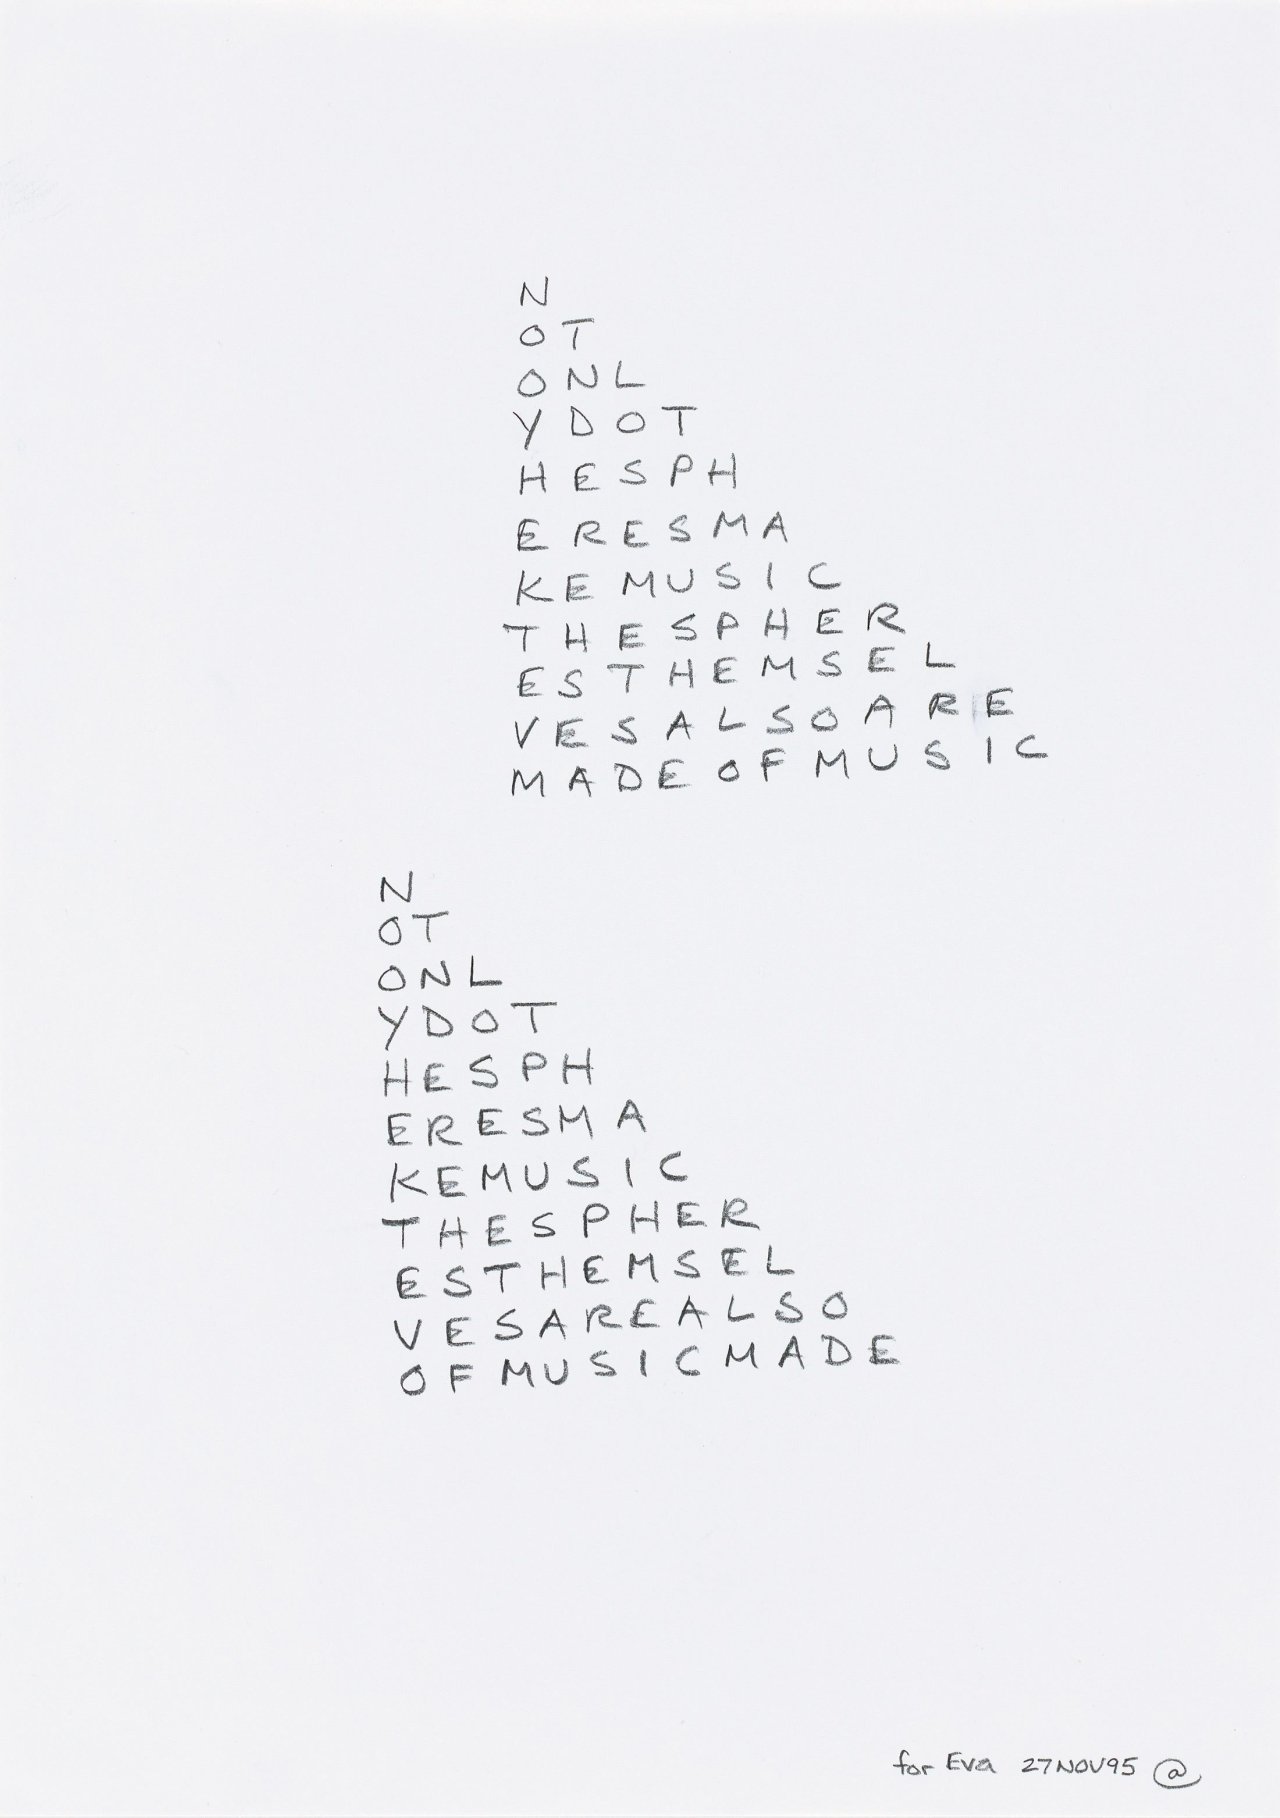 N
OT
ONL
YDOT
HESPH
ERESMA
KEMUSIC
THESPHER
ESTHEMSEL
VESALSOARE
MADEOFMUSIC
N
OT
ONL
YDOT
HESPH
ERESMA
KEMUSIC
THESPHER
ESTHEMSEL
VESAREALSO
OFMUSICMADE
for Eva 27NOV95 @